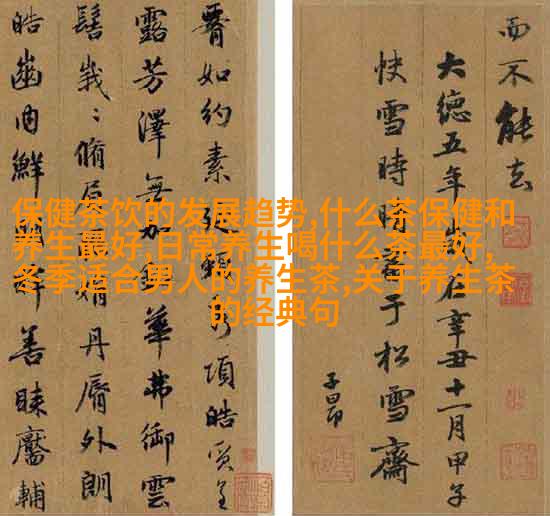 保健茶饮的发展趋势,什么茶保健和
养生最好,日常养生喝什么茶最好,
冬季适合男人的养生茶,关于养生茶
的经典句
如約素延頸項皓質呈
露芳澤無加華弗御雲
髻峩〻脩眉娟丹脣外朗
皓齒内鮮善睞靨輔
而不能去
大德五年辛丑十一月甲子
快雪時晴書于松雪齋
子昂